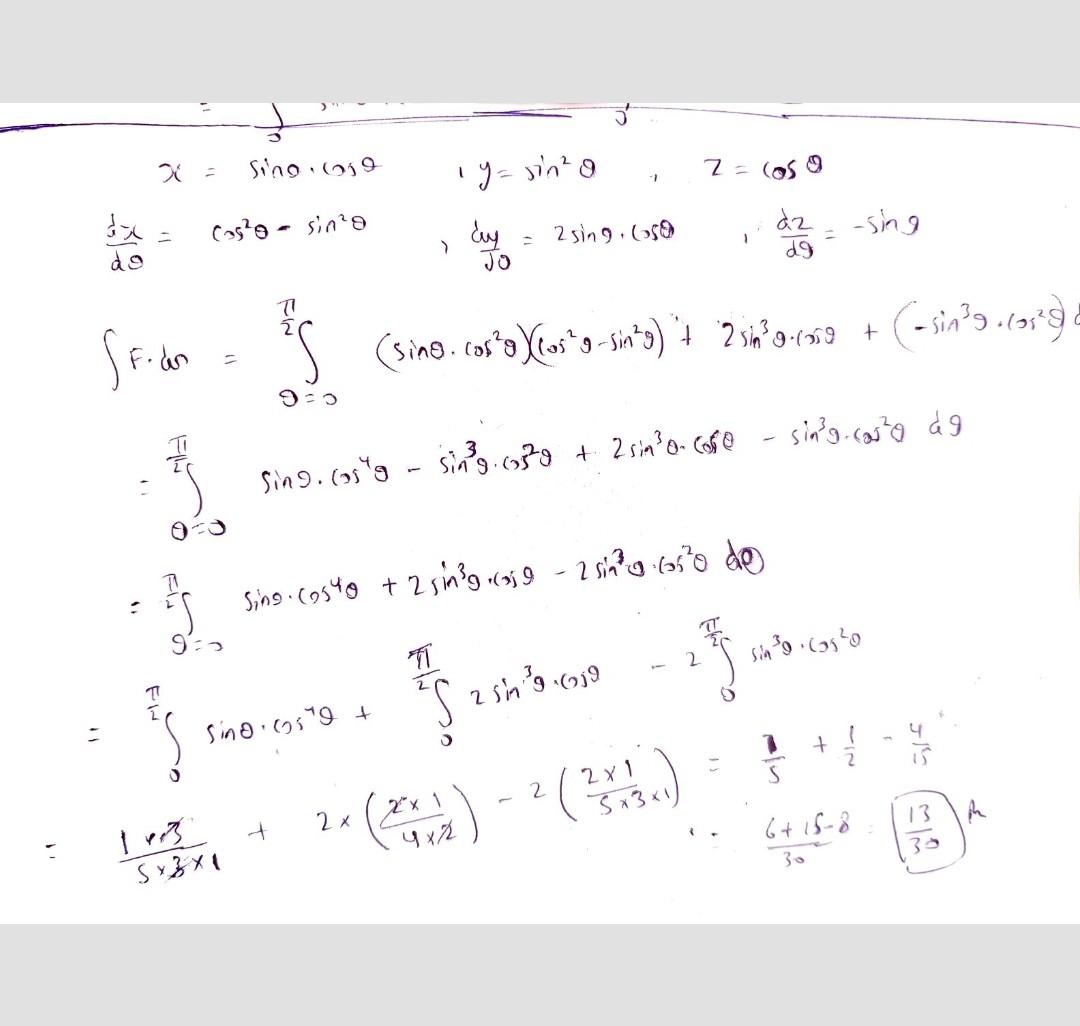 x = sinθ.cosθ , y = sin²θ , z = cosθ
dx/dθ = cos²θ - sin²θ , dy/dθ = 2sinθ.cosθ , dz/dθ = -sinθ
∫F.dr = ∫_{θ=0}^{π/2} (sinθ.cos²θ)(cos²θ-sin²θ) + 2sin³θ.cosθ + (-sin³θ.cos²θ)
= ∫_{θ=0}^{π/2} sinθ.cos⁴θ - sin³θ.cos²θ + 2sin³θ.cosθ - sin³θ.cos²θ dθ
= ∫_{θ=0}^{π/2} sinθ.cos⁴θ + 2sin³θ.cosθ - 2sin³θ.cos²θ dθ
= ∫_{0}^{π/2} sinθ.cos⁴θ + ∫_{0}^{π/2} 2sin³θ.cosθ - 2∫_{0}^{π/2} sin³θ.cos²θ
= (1×3)/(5×3×1) + 2×((2×1)/(4×2)) - 2((2×1)/(5×3×1)) = 1/5 + 1/2 - 4/15
= (6+15-8)/30 = 13/30